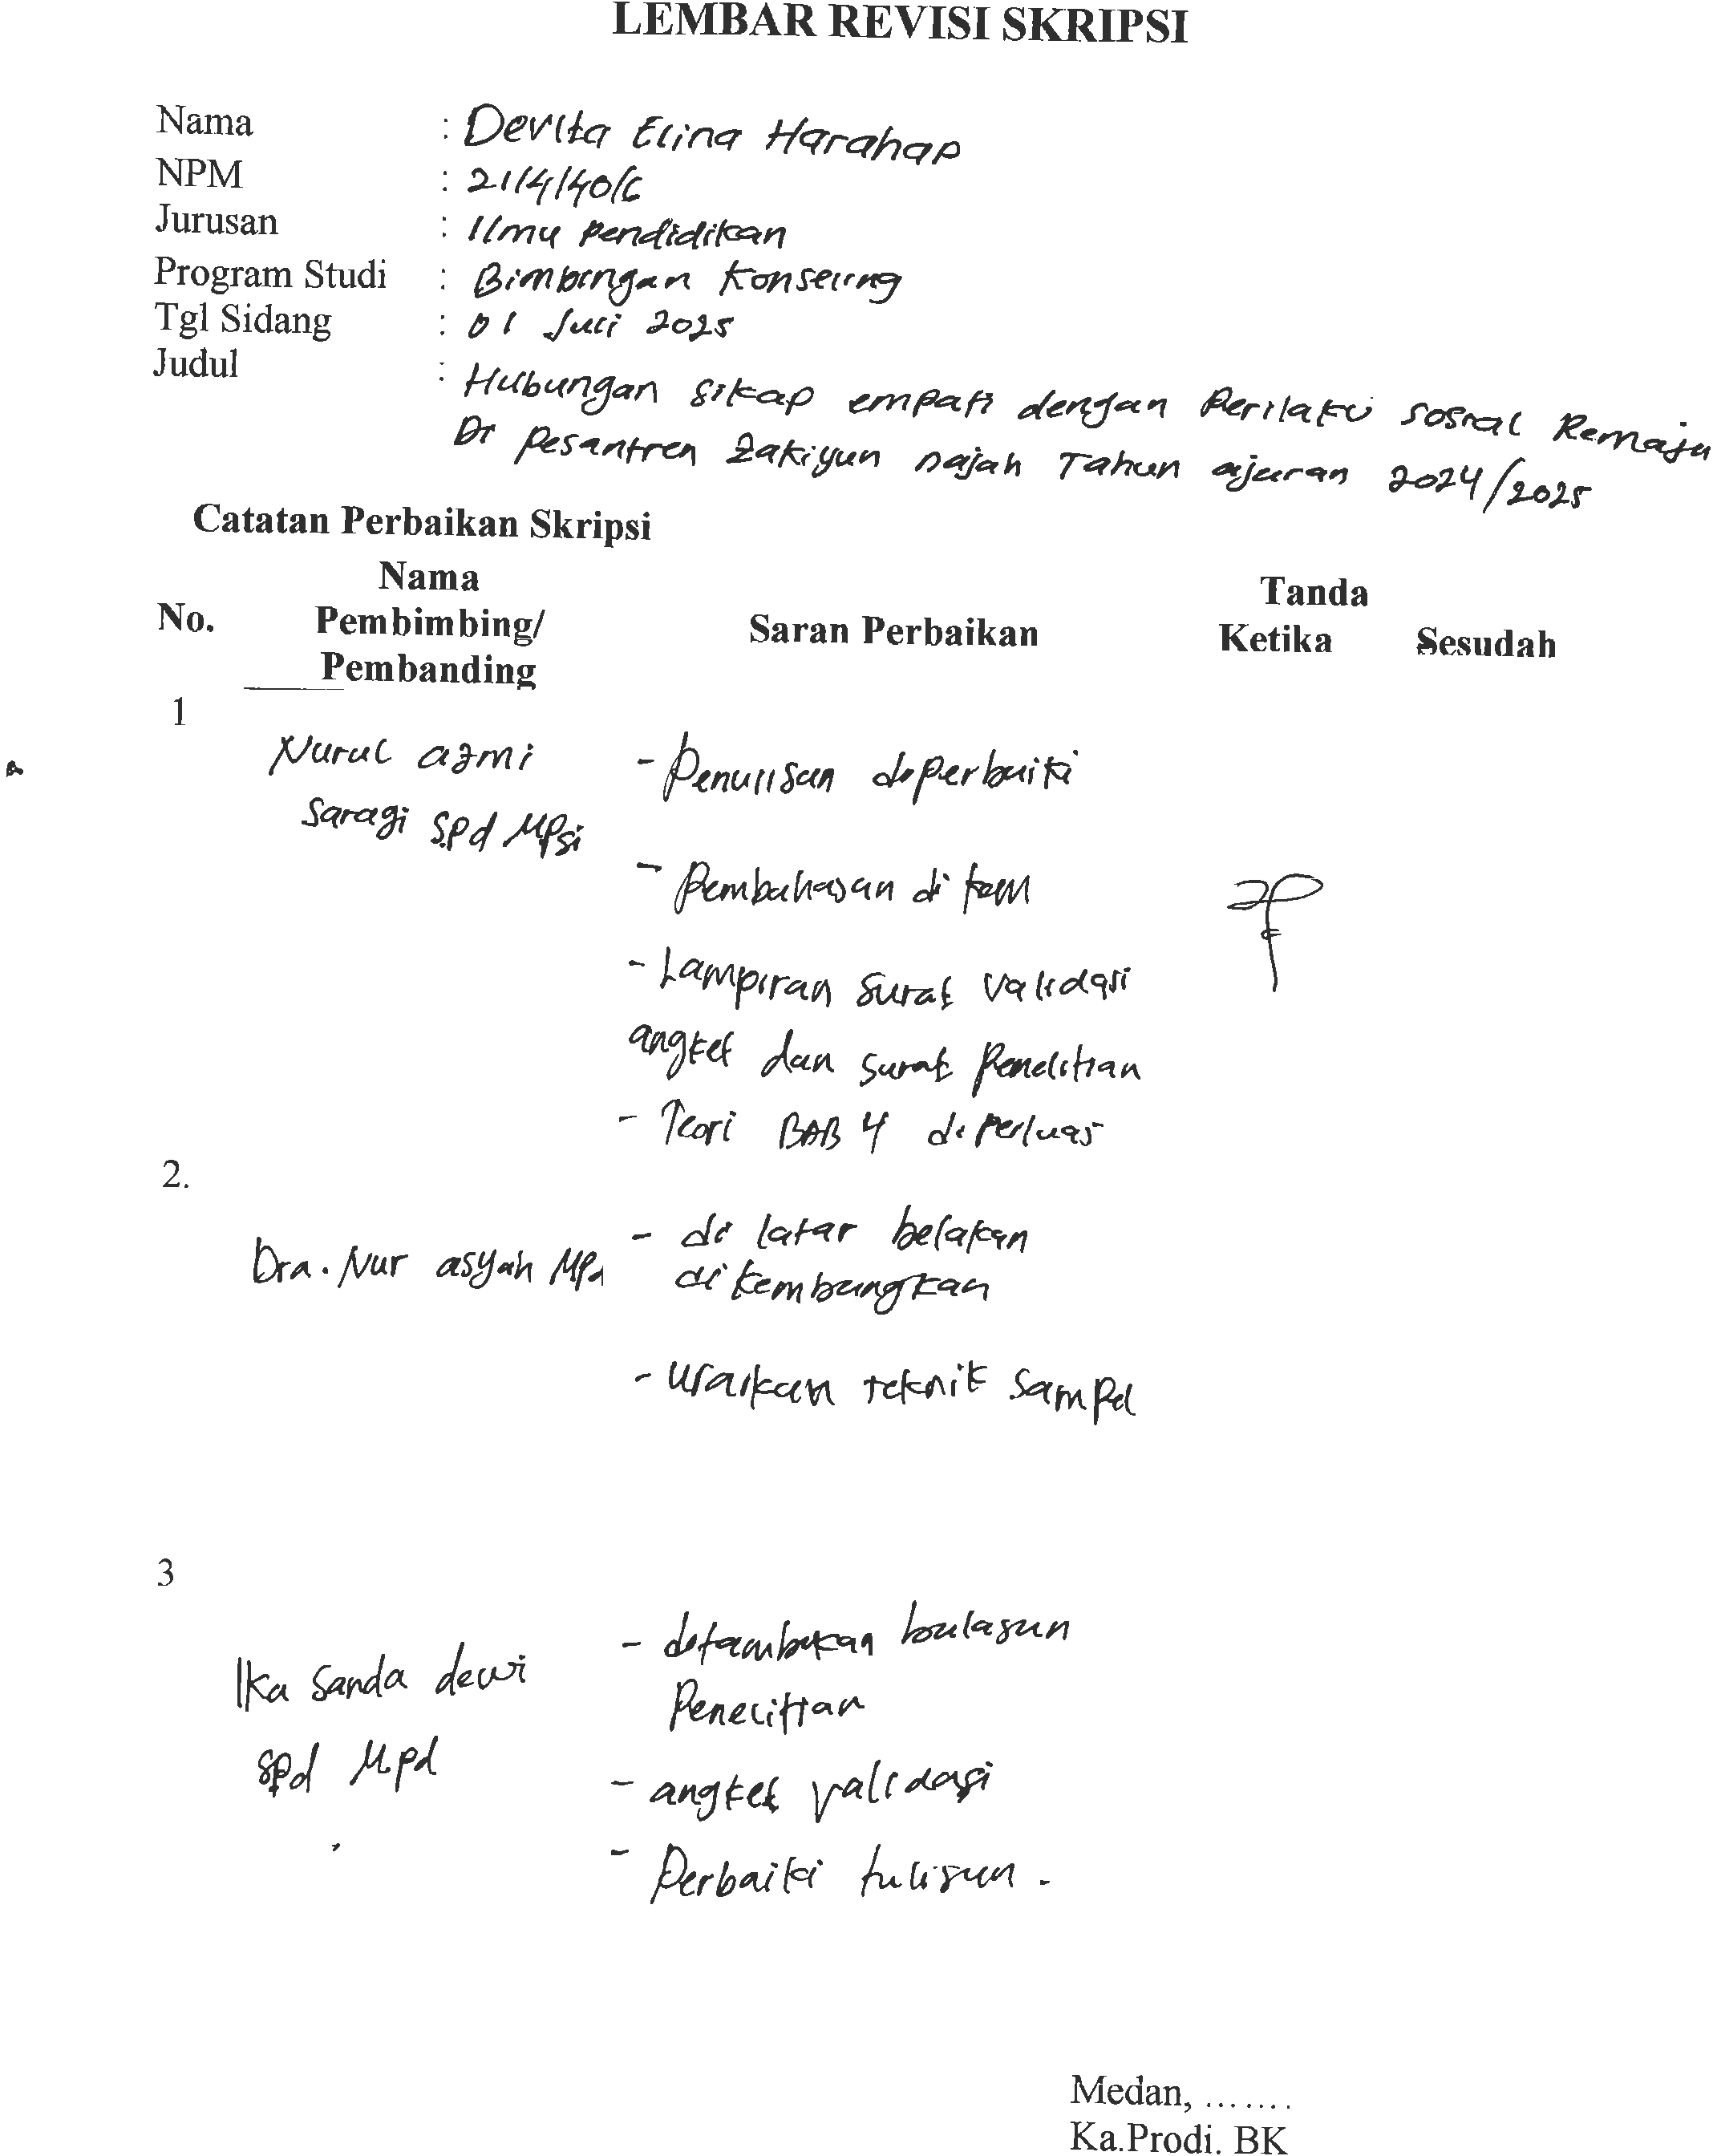 LEMBAR REVISI SKRIPSI
Nama : Devita Elina Harahap
NPM : 211414016
Jurusan : Ilmu pendidikan
Program Studi : Bimbingan Konseling
Tgl Sidang : 01 Juli 2025
Judul : Hubungan sikap empati dengan Perilaku sosial Remaja
Di Pesantren Zakiyun najah Tahun ajaran 2024/2025
Catatan Perbaikan Skripsi
No. Nama Pembimbing/ Pembanding Saran Perbaikan Tanda Ketika Sesudah
1
Nurul azmi - Penulisan diperbaiki
Saragi S.Pd MPsi
- Pembahasan di
- Lampiran Surat Validasi
angket dan surat Penelitian
- Teori BAB 4 diperluas
2.
Dra. Nur asyah MPd - di latar belakan
di kembangkan
- uraikan teknik Sampel
3
- ditambakan bulasan
Ika Sanda dewi Penelitian
Spd M.pd
- angket validasi
- Perbaiki tulisan .
Medan, .......
Ka.Prodi. BK